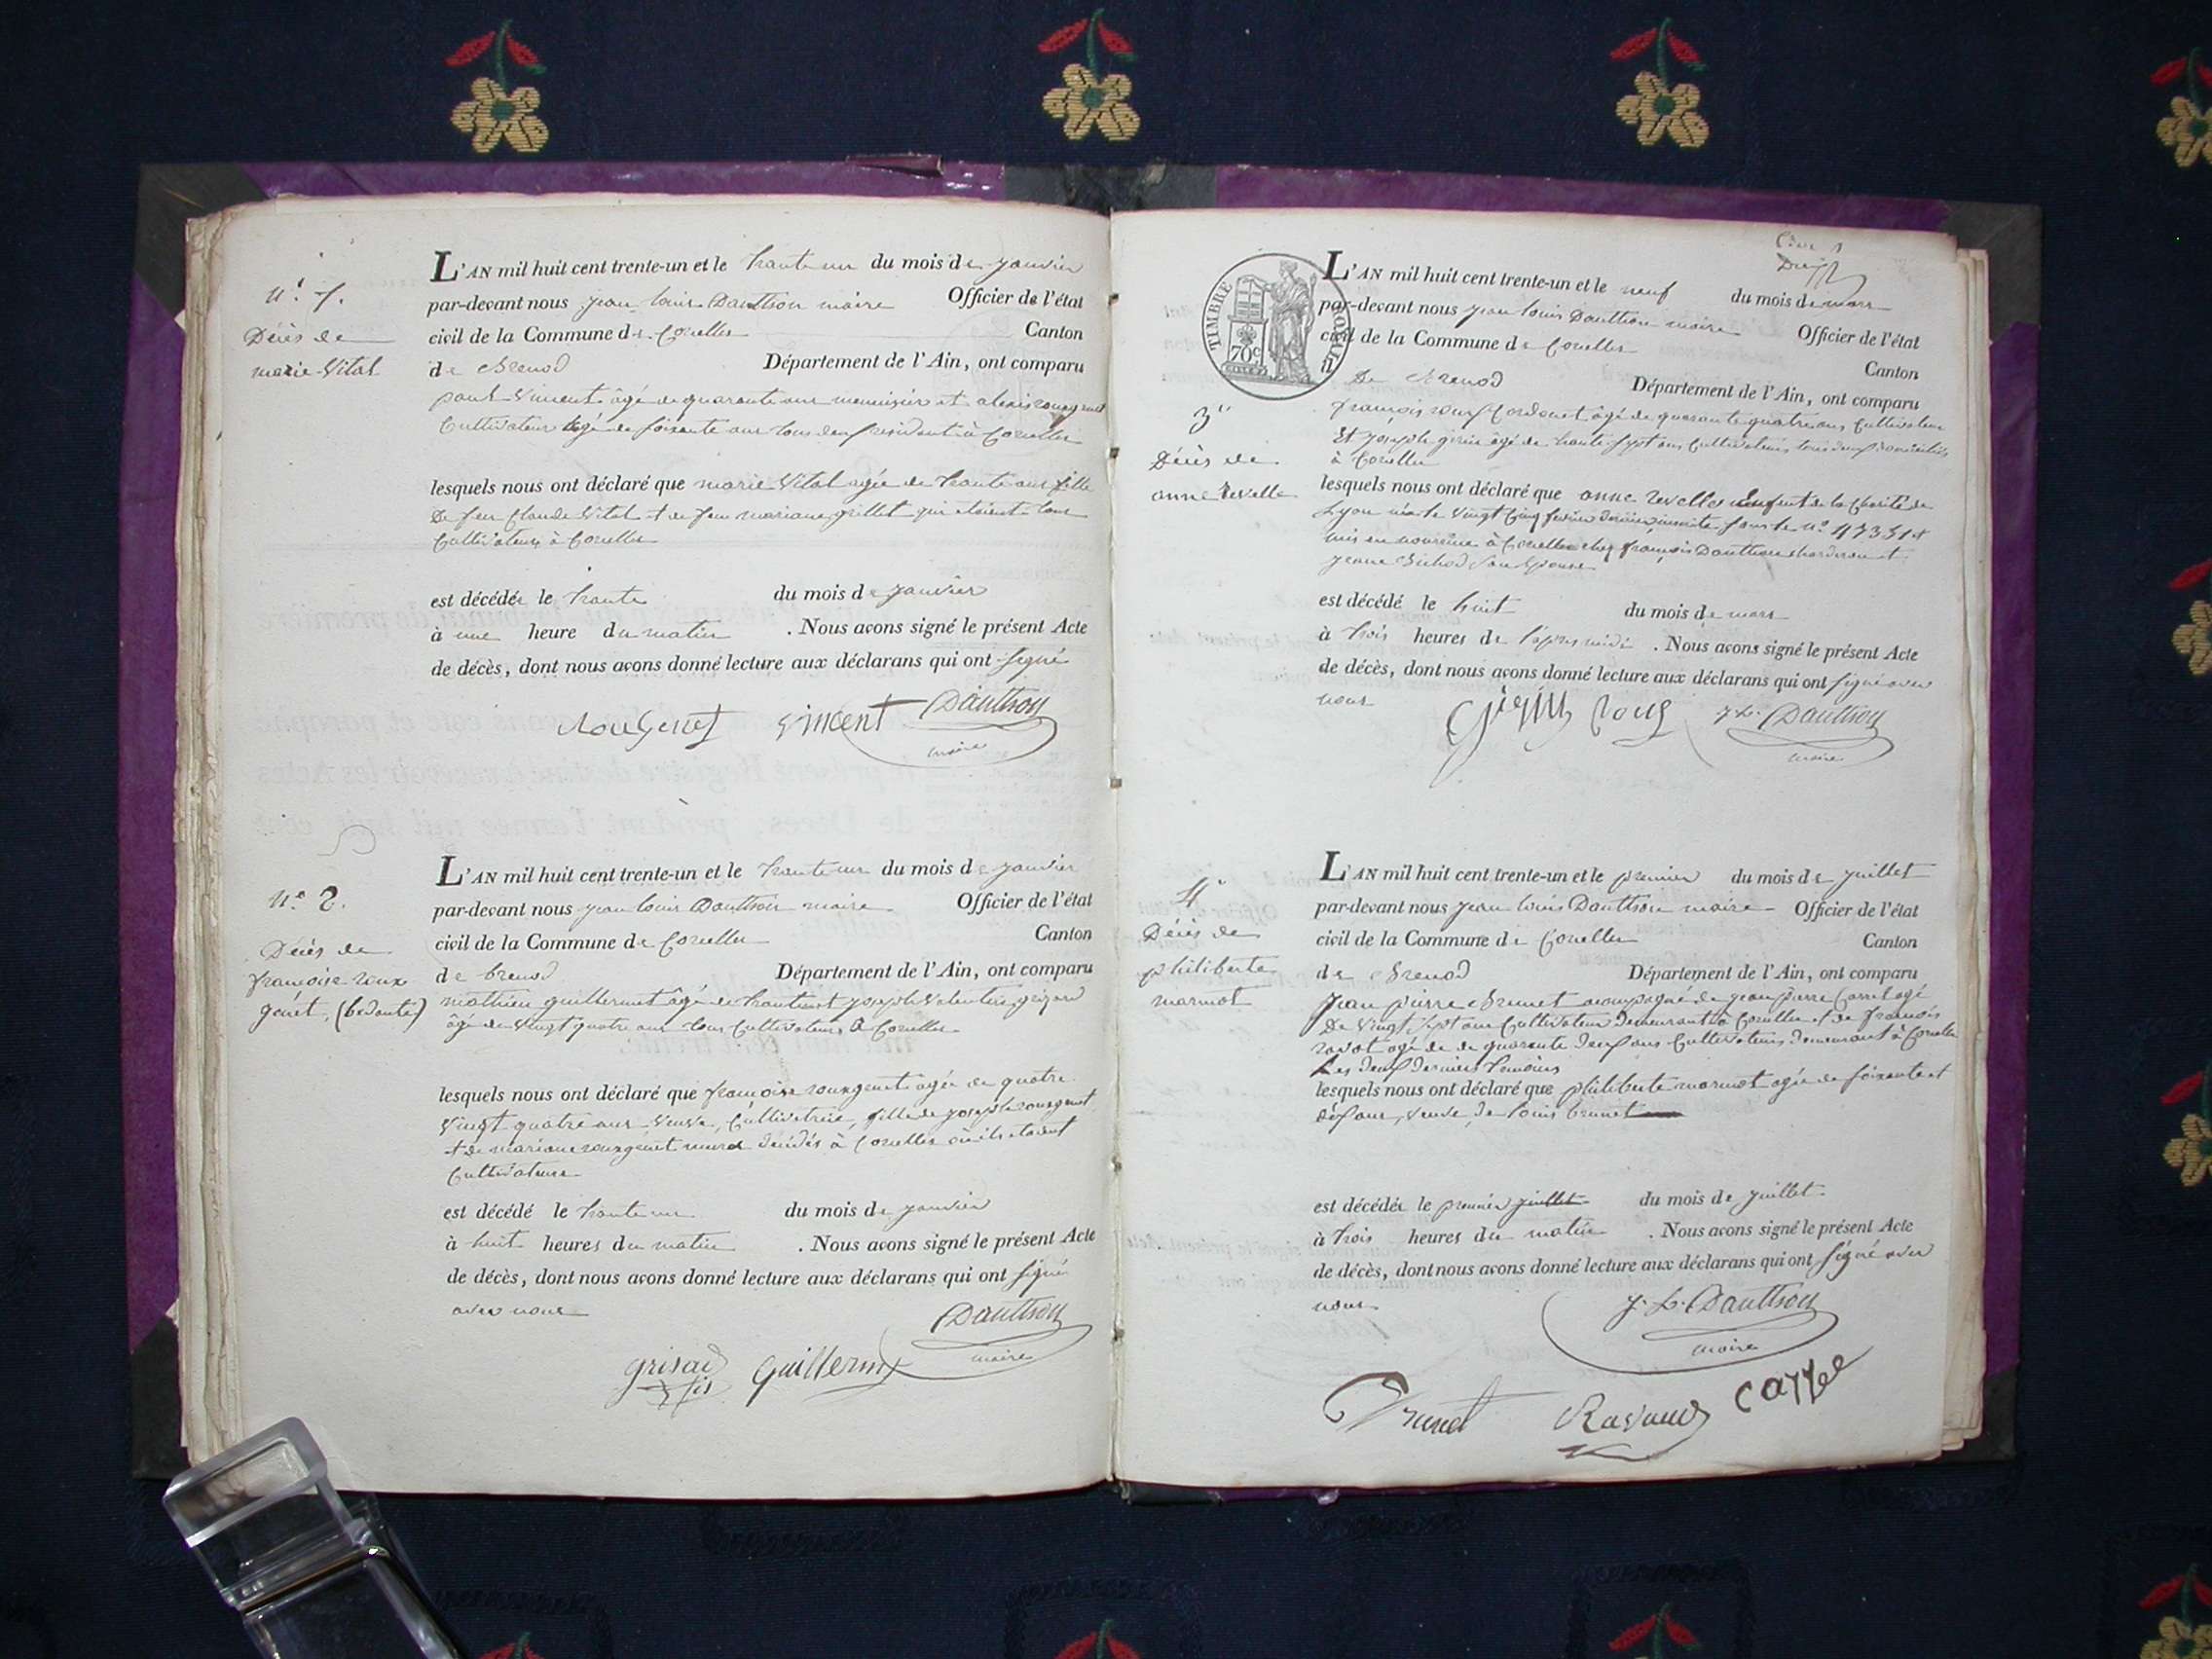 N.° 1.
Décès de
marie Vital
L'AN mil huit cent trente-un et le trente un du mois de janvier
par-devant nous jean louis Dauthon maire Officier de l'état
civil de la Commune de Corcelles Canton
de Brenod Département de l'Ain, ont comparu
paul Vincent âgé de quarante ans menuisier et alexis rougemet
Cultivateur âgé de soixante ans tous deux résidents à Corcelles
lesquels nous ont déclaré que marie Vital agée de trente ans fille
De feu Claude Vital et de feu mariane grillet qui étoient tous
Cultivateurs à Corcelles
est décédée le trente du mois de janvier
à une heure du matin . Nous avons signé le présent Acte
de décès, dont nous avons donné lecture aux déclarans qui ont signé
Vincent Dauthon
maire
N.° 2.
Décès de
françoise roux
genet, (bedaute)
L'AN mil huit cent trente-un et le trente un du mois de janvier
par-devant nous jean louis Dauthon maire Officier de l'état
civil de la Commune de Corcelles Canton
de brenod Département de l'Ain, ont comparu
mathieu guillermet âgé de et joseph Valentin grizard
âgé de Vingt quatre ans tous Cultivateurs à Corcelles
lesquels nous ont déclaré que françoise rouxgenet agée de quatre
Vingt quatre ans Veuve, Cultivatrice, fille de joseph rouxgenet
et de mariane rouxgenet décédés à Corcelles où ils étoient
Cultivateurs
est décédé le trente un du mois de janvier
à huit heures du matin . Nous avons signé le présent Acte
de décès, dont nous avons donné lecture aux déclarans qui ont signé
avec nous Dauthon
maire
grisard fils Guillermet
TIMBRE ROYAL
70c
3°
Décès de
anne revelle
L'AN mil huit cent trente-un et le neuf du mois de mars
par-devant nous jean louis Dauthon maire Officier de l'état
civil de la Commune de Corcelles Canton
De Brenod Département de l'Ain, ont comparu
françois roux Cordonet âgé de quarante quatre ans Cultivateur
Et joseph girin âgé de trente sept ans Cultivateurs tous deux domiciliés
à Corcelles
lesquels nous ont déclaré que anne revelle Enfant de la Charité de
Lyon née le Vingt Cinq février dernier inscrite sous le n° 47351 et
mis en nourrice à Corcelles chez françois Dauthon et
jeane Bichod Son Epouse
est décédé le huit du mois de mars
à trois heures de l'après midi . Nous avons signé le présent Acte
de décès, dont nous avons donné lecture aux déclarans qui ont signé avec
nous roux J L. Dauthon
maire
4°
Décès de
philiberte
marmot
L'AN mil huit cent trente-un et le premier du mois de juillet
par-devant nous jean louis Dauthon maire Officier de l'état
civil de la Commune de Corcelles Canton
de Brenod Département de l'Ain, ont comparu
jean pierre Brunet acompagné de jean pierre Carrel agé
De Vingt sept ans Cultivateur Demeurant à Corcelles et de françois
ravot agé de de quarante deux ans Cultivateurs demeurant à Corcelles
Les deux derniers temoins
lesquels nous ont déclaré que philiberte marmot agée de soixante et
dix ans, Veuve de louis brunet
est décédée le premier juillet du mois de juillet
à trois heures du matin . Nous avons signé le présent Acte
de décès, dont nous avons donné lecture aux déclarans qui ont signé avec
nous J. L. Dauthon
maire
Brunet Carrel